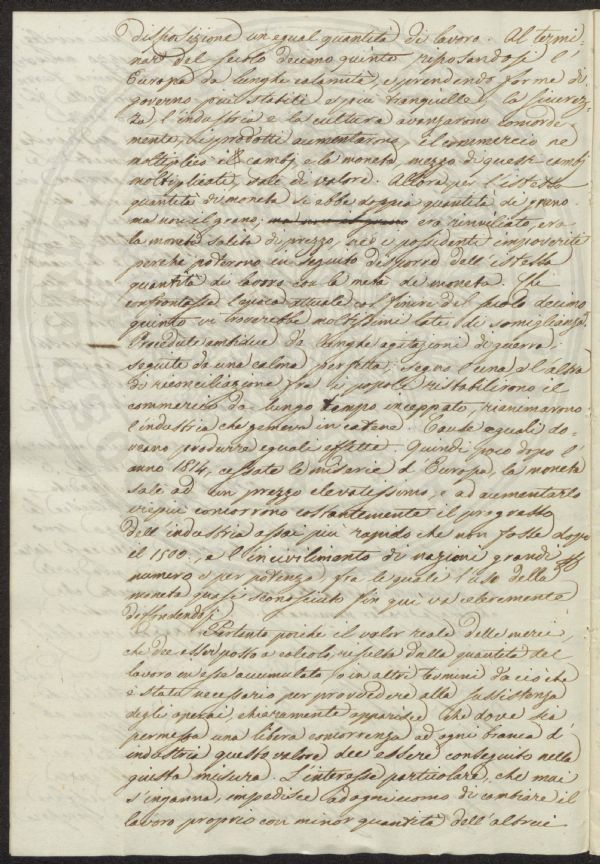 disposizione un egual quantità di lavoro. Al termi-
nar del secolo decimo quinto riposandosi l'
Europa da lunghe calamità, e prendendo forme di
governo più stabili e più tranquille, la sicurez-
za l'industria e la cultura avanzarono concorde
mente, i prodotti aumentarono, il commercio ne
moltiplicò i cambj, e la moneta mezzo di questi cambj
moltiplicati, salì di valore. Allora per l'istessa
quantità di moneta si ebbe doppia quantità di grano:
ma non il grano, era rinviliato, era
la moneta salita di prezzo, nè i possidenti impoveriti
perchè poterono in seguito disporre dell'istessa
quantità di lavoro con la metà di moneta. Chi
confrontasse l'epoca attuale col finire del secolo decimo
quinto vi troverebbe moltissimi lati di somiglianza.
Precedute ambidue da lunghe agitazioni di guerra:
seguite da una calma perfetta; segno l'una e l'altra
di riconciliazione fra i popoli ristabilirono il
commercio da lungo tempo inceppato, rianimarono
l'industria che gemeva in catene. Cause eguali do-
veano produrre eguali effetti. Quindi poco dopo l'
anno 1814, cessate le miserie d'Europa, la moneta
salì ad un prezzo elevatissimo, e ad aumentarlo
viepiù concorrono costantemente il progresso
dell'industria assai più rapido che non fosse dopo
il 1500, e l'incivilimento di nazioni grandi per
numero e per potenza fra le quali l'uso della
moneta quasi sconosciuto fin quì va celermente
diffondendosi.
Pertanto poichè il valor reale delle merci
che dee esser posto a calcolo risulta dalla quantità del
lavoro in esse accumulato, o in altri termini da ciò che
è stato necessario per provvedere alla sussistenza
degli operai, chiaramente apparisce che dove sia
permessa una libera concorrenza ad ogni branca d'
industria questo valore dee essere conseguito nella
giusta misura. L'interesse particolare, che mai
s'inganna, impedisce ad ogni uomo di cambiare il
lavoro proprio con minor quantità dell'altrui